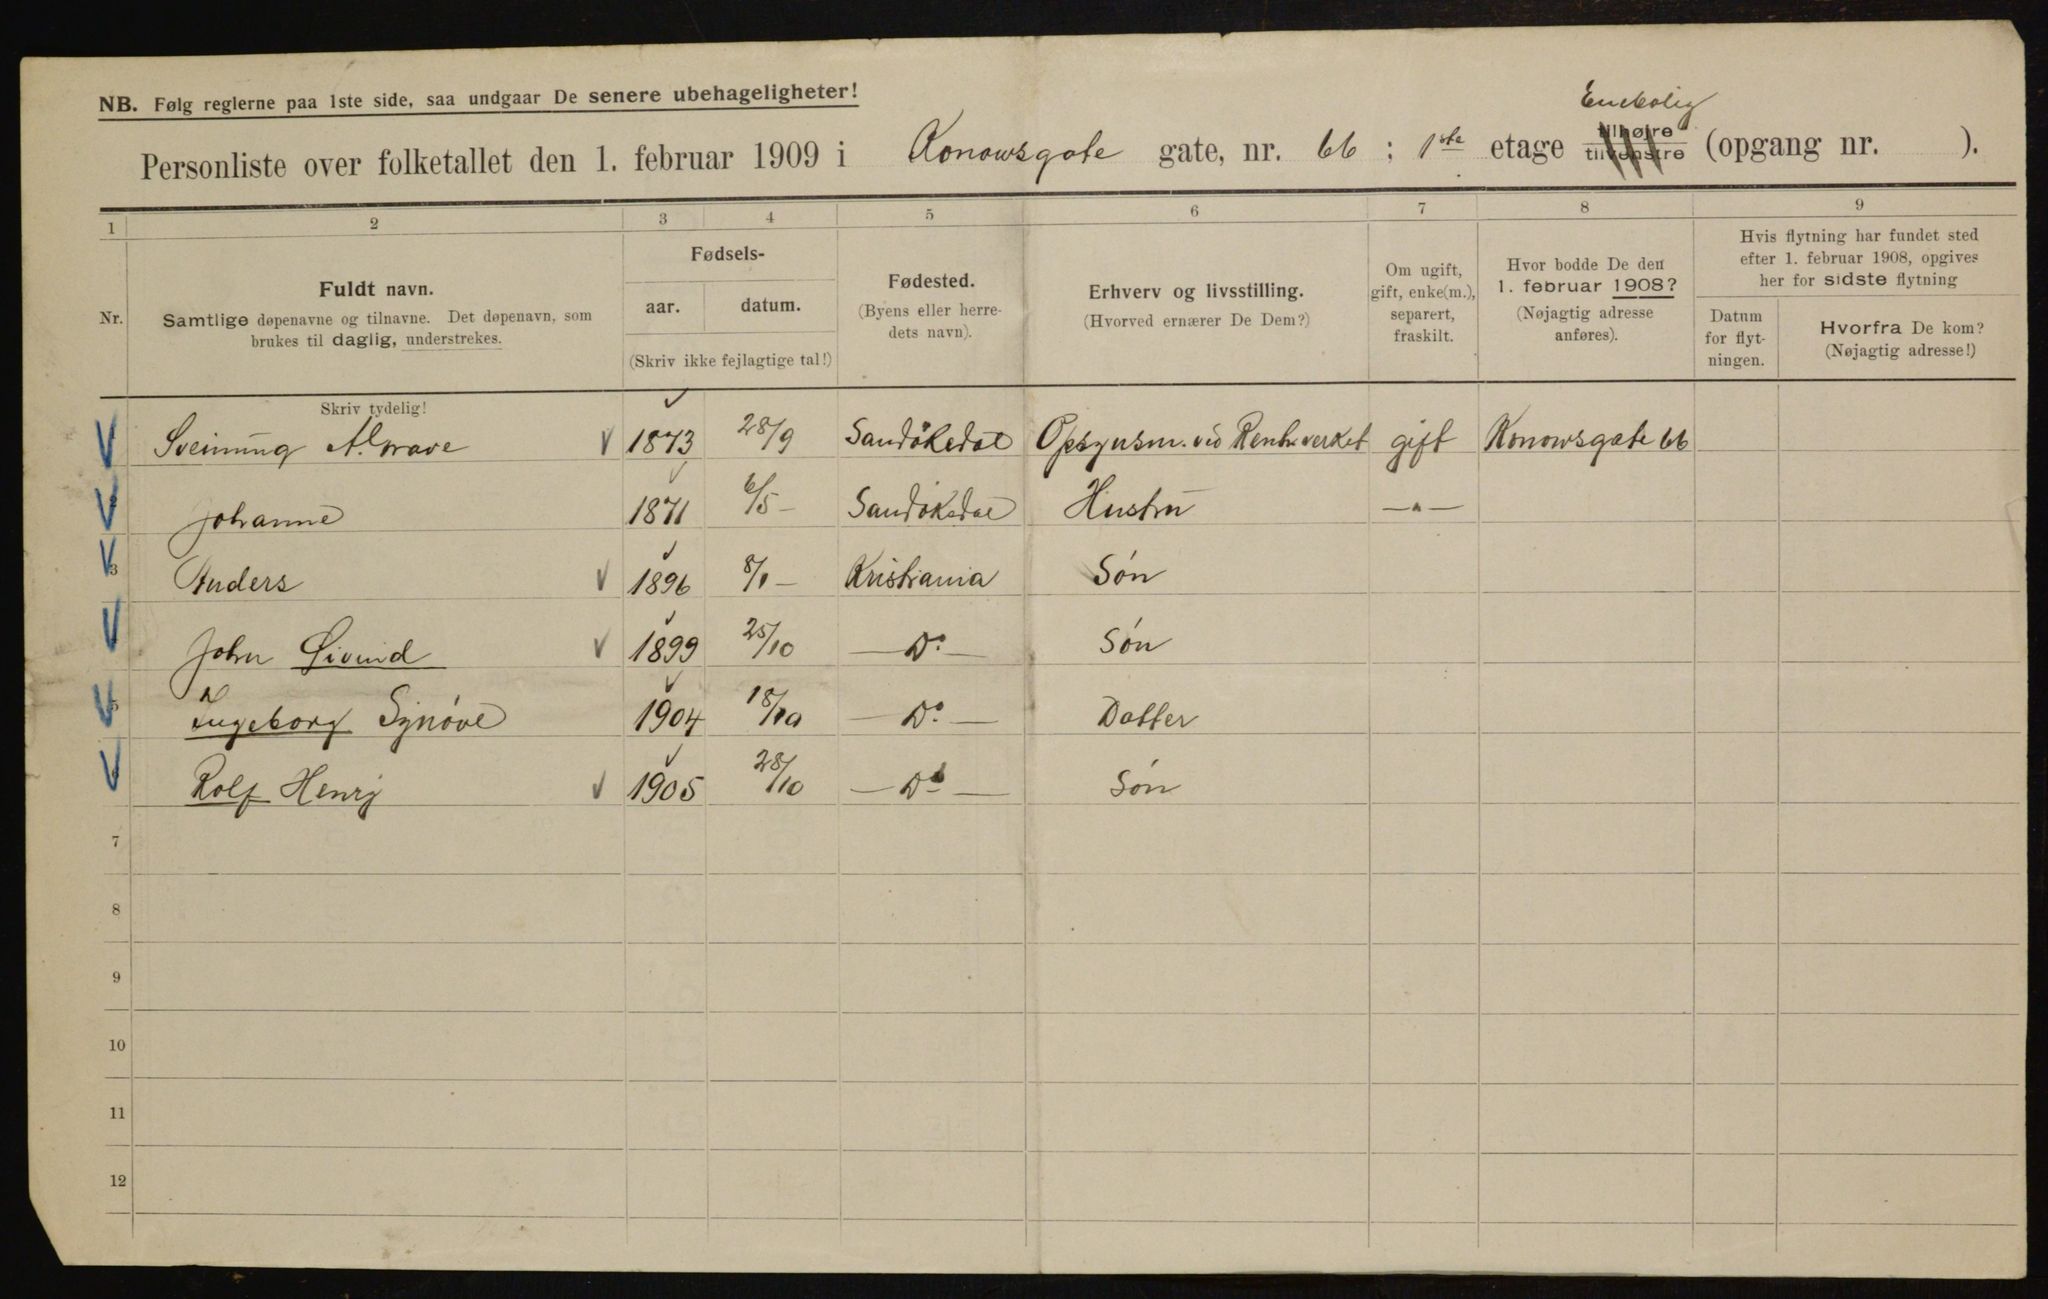 NB. Følg reglerne paa 1ste side, saa undgaar De senere ubehageligheter!
Enebolig
Personliste over folketallet den 1. februar 1909 i Konowsgate gate, nr. 66 ; 1ste etage tilhøjre tilvenstre (opgang nr. ).
1 2 3 4 5 6 7 8 9
Nr.
Fuldt navn.
Samtlige døpenavne og tilnavne. Det døpenavn, som
brukes til daglig, understrekes.
Fødsels-
aar. datum.
(Skriv ikke fejlagtige tal!)
Fødested.
(Byens eller herre-
dets navn).
Erhverv og livsstilling.
(Hvorved ernærer De Dem?)
Om ugift,
gift, enke(m.),
separert,
fraskilt.
Hvor bodde De den
1. februar 1908?
(Nøjagtig adresse
anføres).
Hvis flytning har fundet sted
efter 1. februar 1908, opgives
her for sidste flytning
Datum
for flyt-
ningen.
Hvorfra De kom?
(Nøjagtig adresse!)
Skriv tydelig!
Sveinung A. 1873 28/9 Sandökedal Opsynsm. vid Renh.verket gift Konowsgate 66
2 Johanne 1871 6/5 – Sandökedal Hustru —„—
3 Anders 1896 8/1 – Kristiania Søn
John Øivind 1899 25/10 — Do — Søn
5 Ingeborg Synöve 1904 18/10 — Do — Datter
Rolf Henry 1905 28/10 — Do — Søn
7
8
9
10
11
12